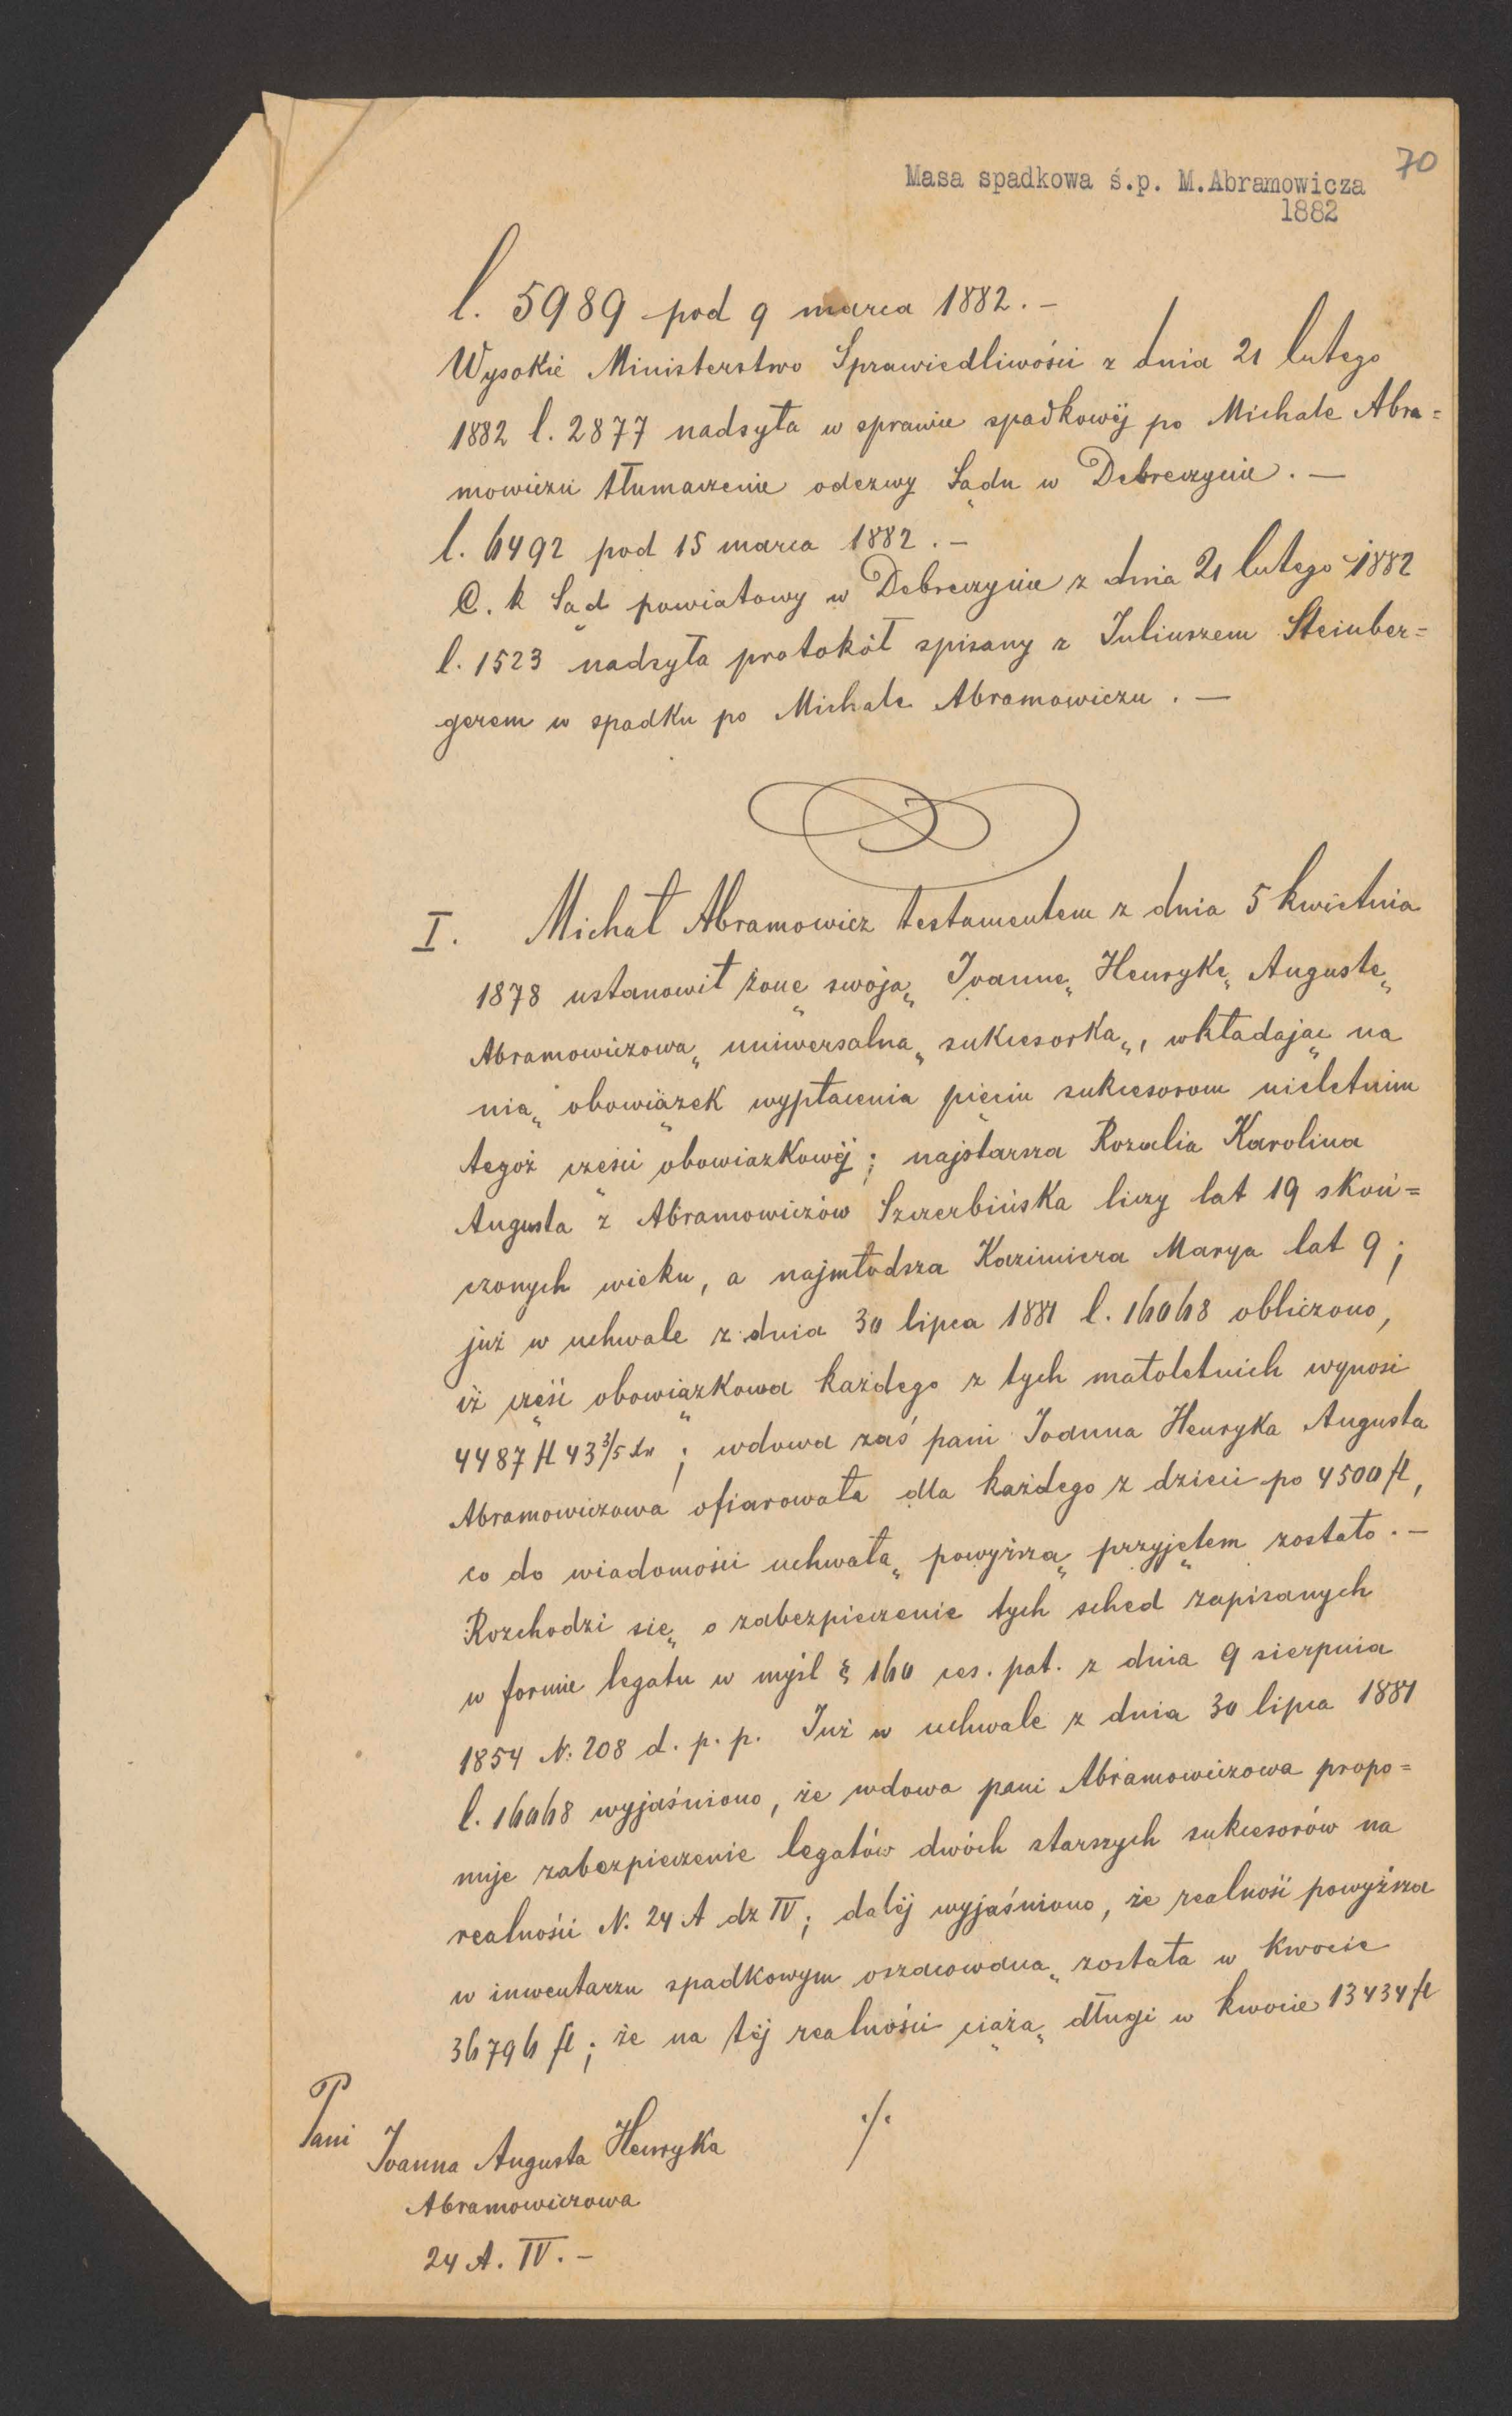 70
Masa spadkowa ś.p. M.Abramowicza
1882
l. 5989 pod 9 marca 1882. –
Wysokie Ministerstwo Sprawiedliwości z dnia 21 lutego
1882 l. 2877 nadsyła w sprawie spadkowéj po Michale Abra=
mowiczu tłumaczenie odezwy Sądu w Debreczynie. —
l. 6492 pod 15 marca 1882. –
C. k Sąd powiatowy w Debreczynie z dnia 21 lutego 1882
l. 1523 nadsyła protokół spisany z Juliuszem Steinber=
gerem w spadku po Michale Abramowiczu. —
I. Michał Abramowicz testamentem z dnia 5 kwietnia
1878 ustanowił żonę swoją Joannę Henrykę Augustę
Abramowiczową uniwersalną sukcesorką, wkładając na
nią obowiązek wypłacenia pięciu sukcesorom nieletnim
tegoż części obowiązkowéj; najstarsza Rozalia Karolina
Augusta z Abramowiczów Szczerbińska liczy lat 19 skoń=
czonych wieku, a najmłodsza Kazimiera Marya lat 9;
już w uchwale z dnia 30 lipca 1881 l. 16068 obliczono,
iż część obowiązkowa każdego z tych małoletnich wynosi
4487 fl 43 3/5 kr; wdowa zaś pani Joanna Henryka Augusta
Abramowiczowa ofiarowała dla każdego z dzieci po 4500 fl,
co do wiadomości uchwałą powyższą przyjętem zostało. –
Rozchodzi się o zabezpieczenie tych sched zapisanych
w formie legatu w myśl § 160 ces. pat. z dnia 9 sierpnia
1854 N: 208 d. p. p. Już w uchwale z dnia 30 lipca 1881
l. 16068 wyjaśniono, że wdowa pani Abramowiczowa propo=
nuje zabezpieczenie legatów dwóch starszych sukcesorów na
realności N. 24 A dz IV; daléj wyjaśniono, że realność powyższa
w inwentarzu spadkowym oszacowaną została w kwocie
36796 fl; że na téj realności ciążą długi w kwocie 13434 fl
./.
Pani
Joanna Augusta Henryka
Abramowiczowa
24 A. IV. –